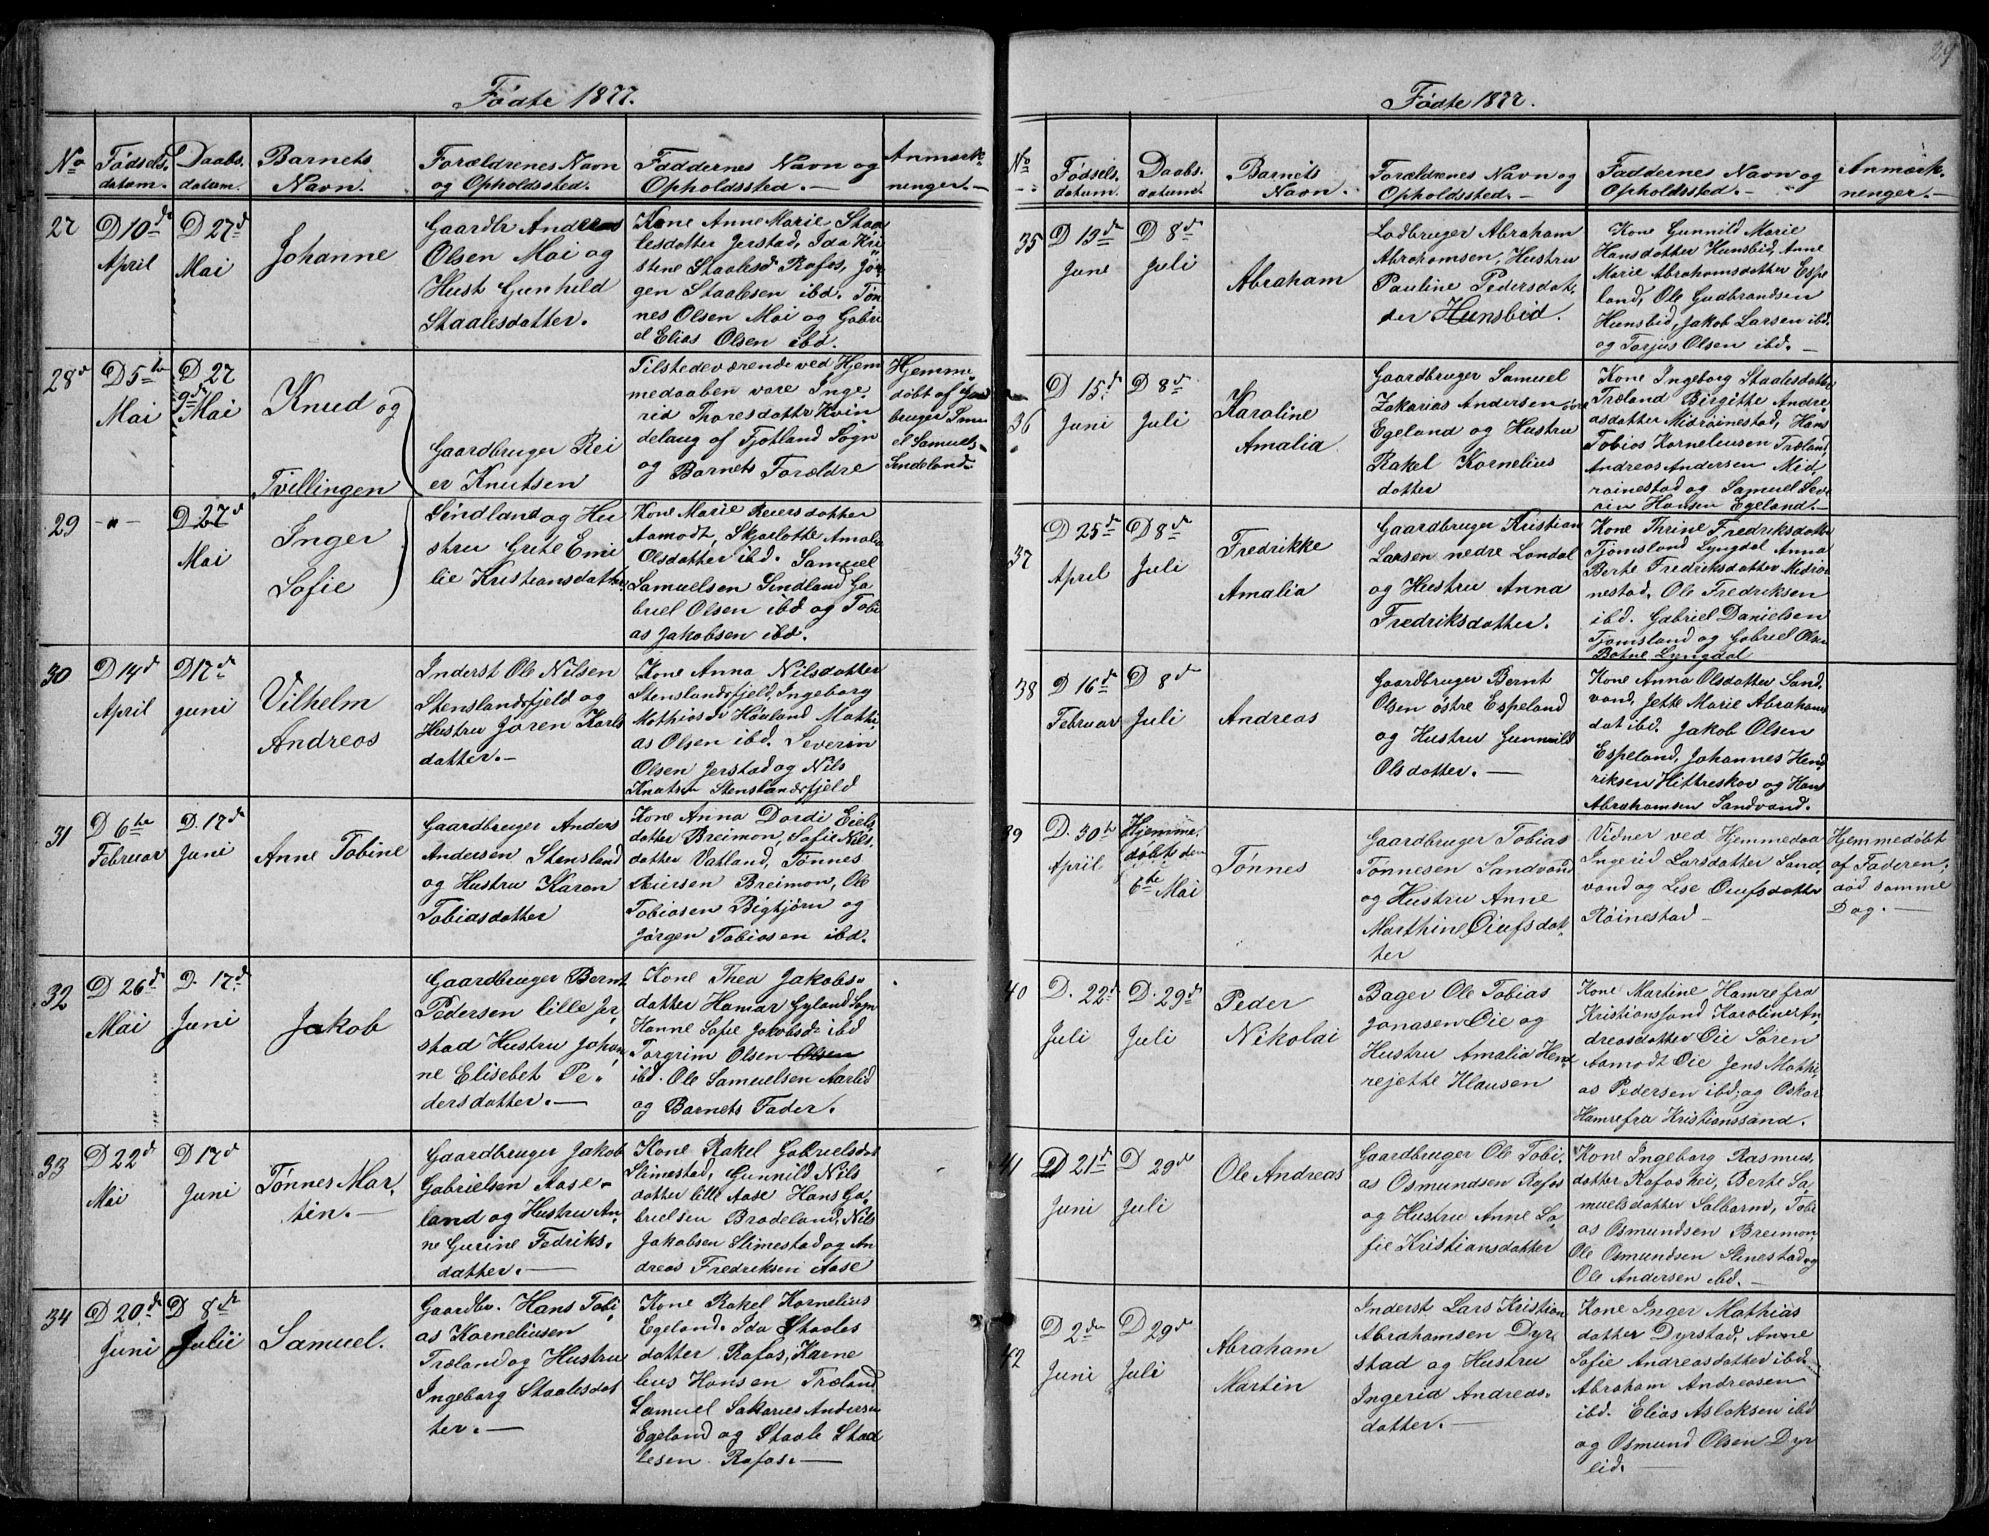 29
Fødte 1877.
No
Fødsels-
datum.
Daabs.
datum.
Barnets
Navn.
Forældrenes Navn
og Opholdssted.
Faddernes Navn og
Opholdssted. —
Anmærk-
ninger. —
27
D 10de
April
D 27de
Mai
Johanne
Gaardbr Anders
Olsen Moi og
Hust Gunhild
Staalesdatter.
Kone Anne Marie Staa
lesdatter Jerstad, Ida Kri
stene Staalesd Rafos, Jør
gen Staalesen ibd. Tøn
nes Olsen Moi og Gabri
el Elias Olsen ibd.
28
D 5te
Mai
D 27
Mai
Knud og
Tvillingen
Gaardbruger Rei
er Knutsen
Tilstedeværende ved Hjem
medaaben vare Inge,
rid Thoresdatter Kvin
delaug af Fjotland Sogn
og Barnets Forældre
Hjemme
døbt af Gaard
bruger Samu
el Samuels-
Sindeland
29
-"-
D 27de
Mai
Inger
Sofie
Sindland og Hu
stru Grete Emi
lie Kristiansdatter
Kone Marie Reiersdatter
Aamodt, Skarlotte Amalia
Olsdatter ibd. Samuel
Samuelsen Sindland Ga
briel Olsen ibd og Tobi
as Jakobsen ibd.
30
D 14de
April
D 17de
Juni
Vilhelm
Andreas
Inderst Ole Nilsen
Stenslandsfjeld og
Hustru Joren Karls
datter. —
Kone Anna Nilsdatter
Stenslandsfjeld, Ingeborg
Mathiasdr Høiland Mathi,
as Olsen ibd. Severin
Olsen Jerstad og Nils
Knutsen Stenslandsfjeld
31
D 6te
Februar
D. 17de
Juni
Anne Tobine
Gaardbruger Anders
Andersen Stensland
og Hustru Karen
Tobiasdatter
Kone Anna Dordi Eiels
datter Breimon, Sofie Nils,
datter Vatland, Tønnes
Reiersen Breimon, Ole
Tobiasen Bigtjørn og
Jørgen Tobiasen ibd.
32
D 26de
Mai
D. 17de
Juni
Jakob
Gaardbruger Bernt
Pedersen lille Jer,
stad Hustru Johan,
ne Elisebet Pe,
dersdatter. —
Kone Thea Jakobs,
datter Hamar Gyland Sogn
Hanne Sofie Jakobsdr ibd
Torgrim Olsen Olsen
ibd. Ole Samuelsen Aarlid
og Barnets Fader.
33
D 22de
Mai
D 17de
Juni
Tønnes Mar,
tin. —
Gaardbruger Jakob
Gabrielsen Aase-
land og Hustru An,
ne Gurine Fedriks,
datter. —
Kone Rakel Gabrielsdat
Slimestad, Gunnild Nils
datter lille Aase Hans Ga,
brielsen Brodeland, Nils
Jakobsen Slimestad og An
dreas Fredriksen Aase
34
D 20de
Juni
D 8de
Julii
Samuel.
Gaardbr. Hans Tobi,
as Korneliusen
Træland og Hustru
Ingeborg Staalesdat
ter. —
Kone Rakel Kornelius
Egeland. Ida Staales
datter Rafos, Korne
lius Hansen Træland
Samuel Sakarias Andersen
Egeland og Staale Staa
lesen Rafos. —
Fødte 1877.
No
Fødsels.
datum.
Daabs.
datum.
Barnets
Navn.
Forældrenes Navn og
Opholdssted. —
Faddernes Navn og
Opholdssted. —
Anmærk-
ninger. —
35
D 13de
June
D 8de
Juli
Abraham
Ladbruger Abraham
Abrahamsen, Hustru
Pauline Pedersdat,
der Hunsbid.
Kone Gunnild Marie
Hansdatter Hunsbid, Anne
Marie Abrahamsdatter Espe
land, Ole Gudbrandsen
Hunsbid, Jakob Larsen ibd.
og Torjus Olsen ibd. —
36
D 15de
Juni
D 8de
Juli
Karoline
Amalia
Gaardbruger Samuel
Zakarias Andersen
Egeland og Hustru
Rakel Kornelius
datter
Kone Ingeborg Staalesdatter
Træland Birgitte Andre,
asdatter Midrøinestad, Hans
Tobias Korneliusen Træland
Andreas Andersen Mid,
røinestad og Samuel Seve
rin Hansen Egeland. —
37
D 25de
April
D 8de
Juli
Fredrikke
Amalia
Gaardbruger Kristian
Larsen nedre Londal
og Hustru Anna
Fredriksdatter.
Kone Thrine Fredriksdatter
Tjomsland Lyngdal Anna
Berte Fredriksdatter Midrøi
nestad, Ole Fredriksen
ibd. Gabriel Danielsen
Tjomsland og Gabriel Olsen
Lyngdal
38
D 16de
Februar
D 8de
Juli
Andreas
Gaardbruger Bernt
Olsen østre Espeland
og Hustru Gunnild
Olsdatter. —
Kone Anna Olsdatter Sand,
vand, Jette Marie Abrahams
dat ibd. Jakob Olsen
Espeland, Johannes Hend
riksen Hittreskov og Hans
Abrahamsen Sandvand.
39
D. 30te
April
Hjemme,
døbt den
6te Mai
Tønnes
Gaardbruger Tobias
Tønnesen Sandvand
og Hustru Anne
Marthine Oiufsdat,
ter
Vidner ved Hjemmedaa
Ingerid Larsdatter Sand,
vand og Lise Oiufsdatter
Røinestad —
Hjemmedøbt
af Faderen,
død samme
Dag. —
40
D. 22de
Juli
D. 29de
Juli
Peder
Nikolai
Bager Ole Tobias
Jonasen Øie og
Hustru Amalia Hen,
rejette Klausen
Kone Martine Hamre fra
Kristiansfand Karoline An,
dreasdatter Øie Søren
Aamodt Øie Jens Mathi,
as Pedersen ibd, og Oskar
Hamre fra Kristianssand.
41
D 21de
Juni
D 29de
Juli
Ole Andreas
Gaardbruger Ole Tobi,
as Osmundsen Rafos
og Hustru Anne So,
fie Kristiansdatter
Kone Ingeborg Rasmus,
datter Rafoshei, Berte Sa,
muelsdatter Solbarm, Tobi
as Osmundsen Breimon,
Ole Osmundsen Slinestad og
Ole Andersen ibd. —
42
D 2de
Juni
D 29de
Juli
Abraham
Martin
Inderst Lars Kristian
Abrahamsen Dyr
stad og Hustru
Ingerid Andreas,
datter. —
Kone Inger Mathias
datter Dyrstad, Anne
Sofie Andreasdatter ibd.
Abraham Andreasen
ibd. Elias Aslaksen ibd
og Osmund Olsen Dyr
lid. —